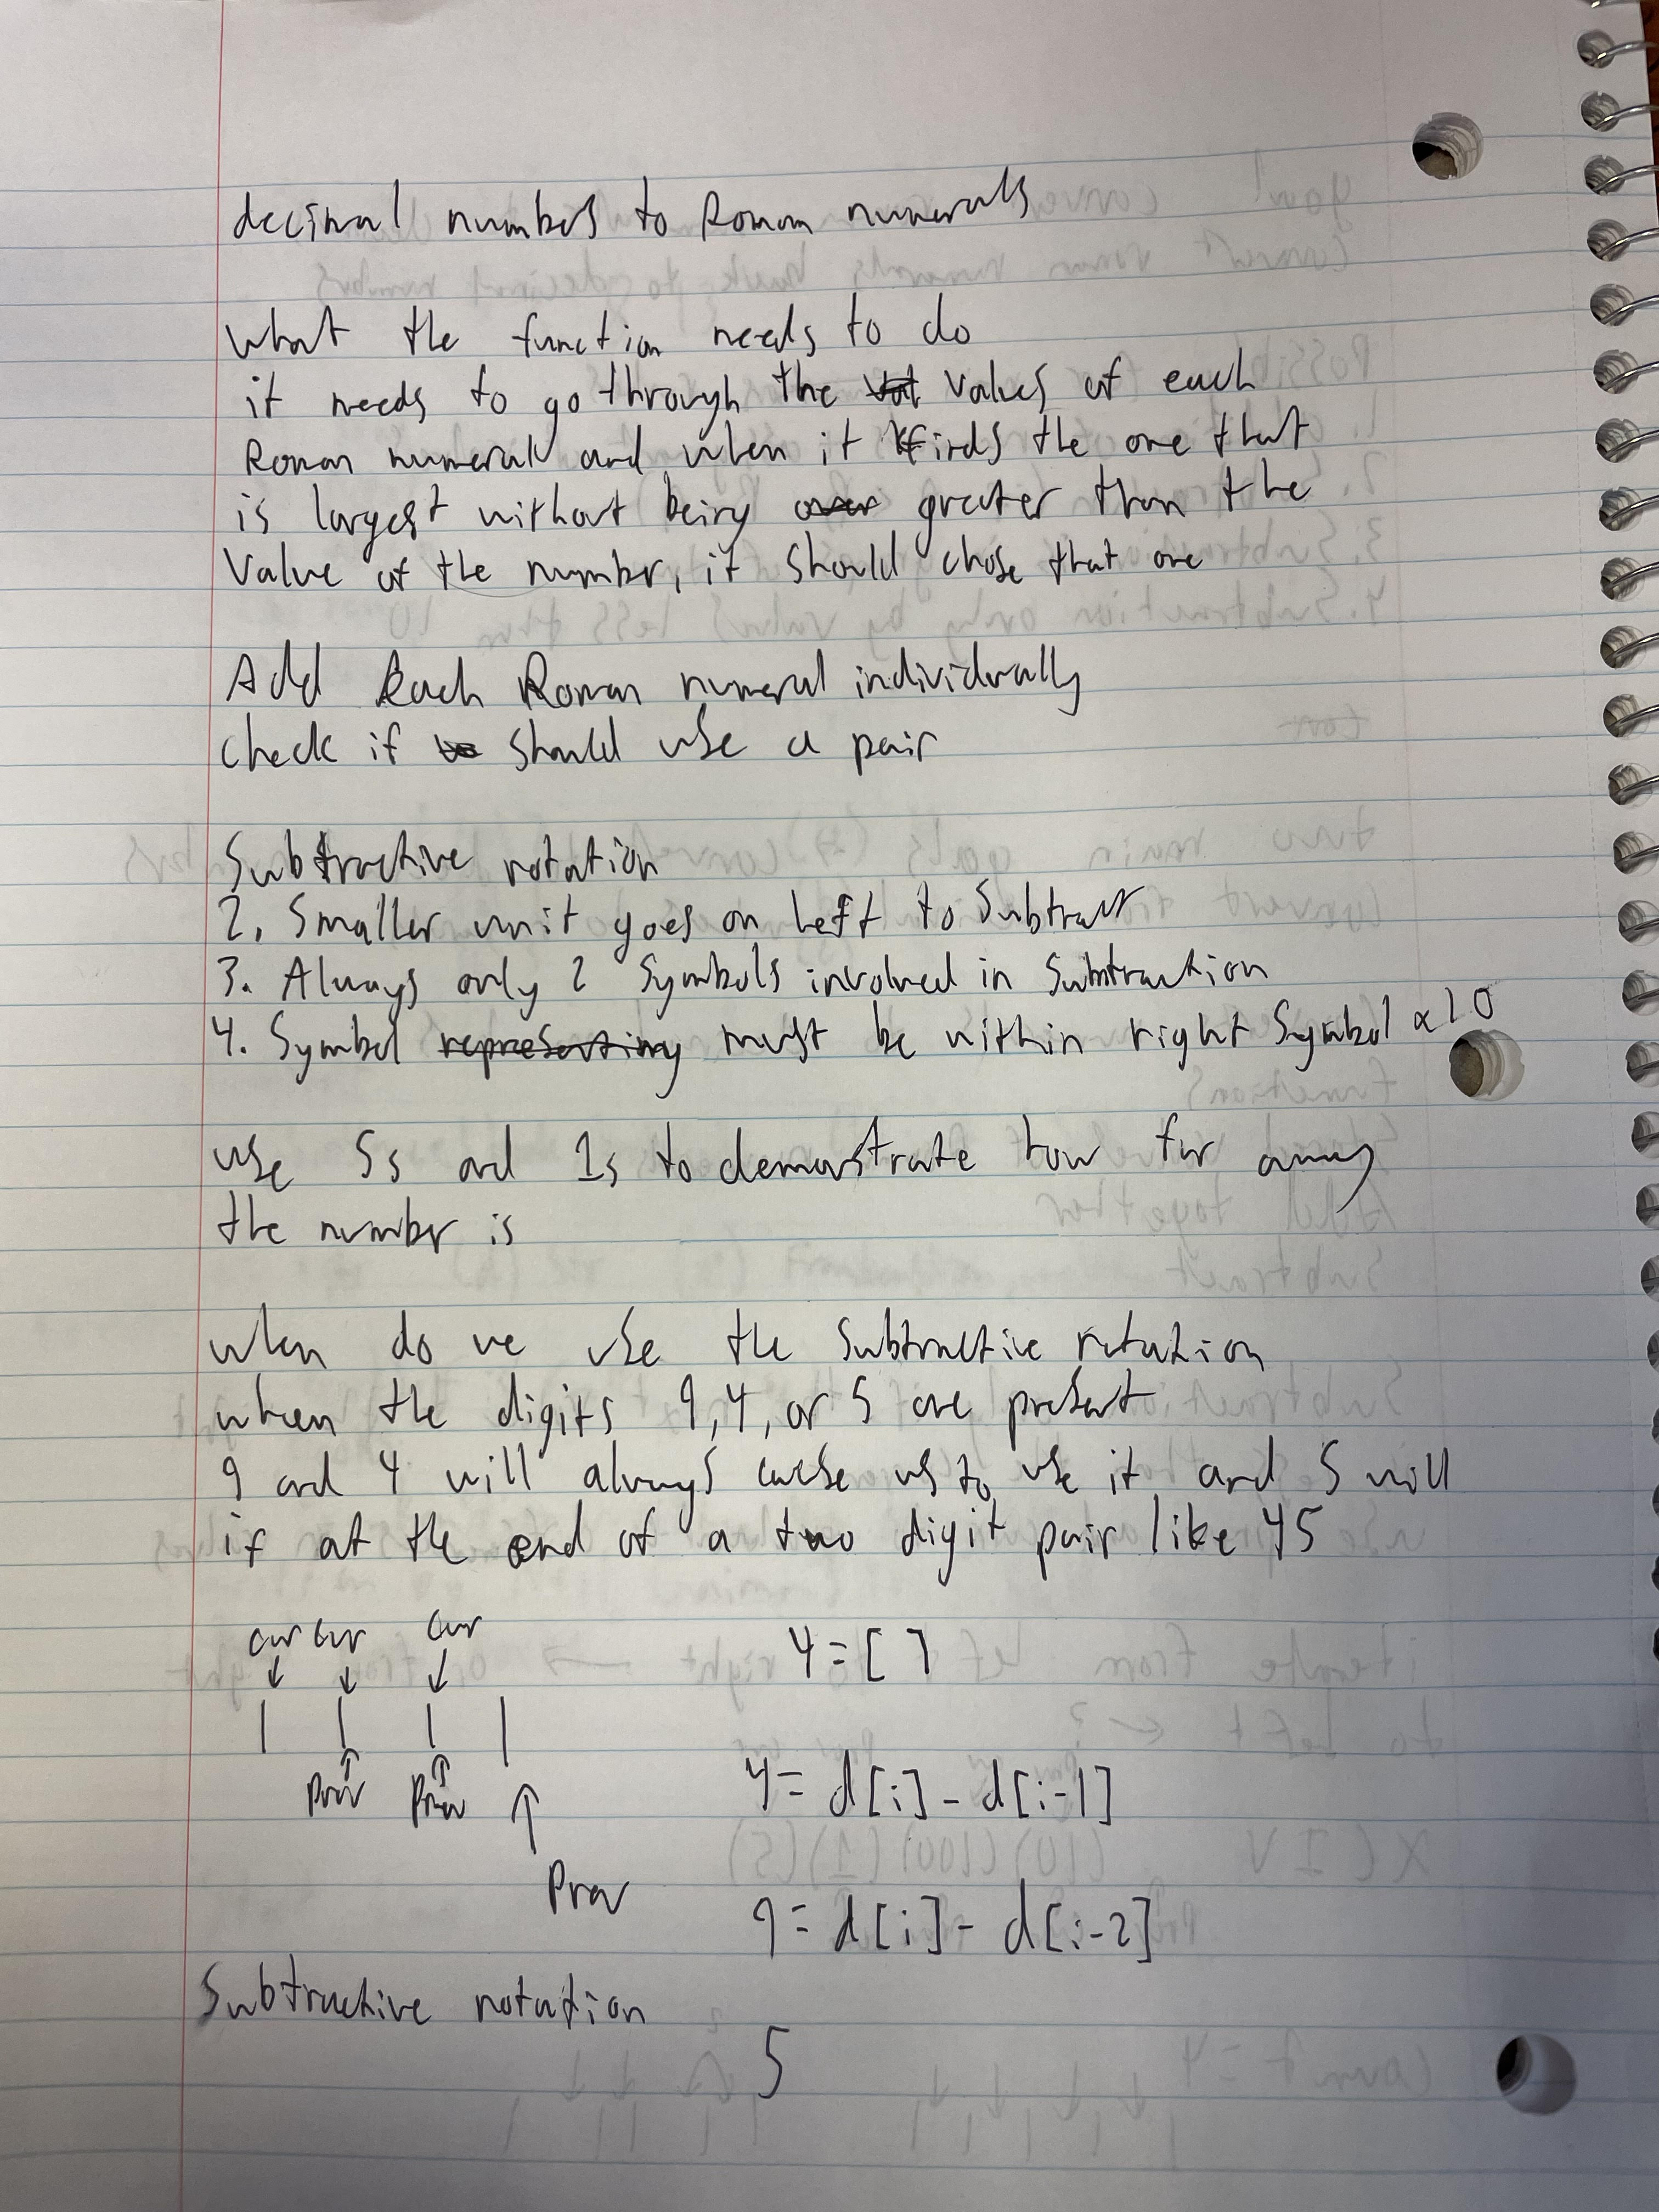 decimal numbers to Roman numerals
what the function needs to do
it needs to go through the values of each
Roman numeral and when it finds the one that
is largest without being greater than the
Value of the number, it should chose that one
Add Each Roman numeral individually
check if should use a pair
Subtractive notation
2. Smaller unit goes on Left to Subtract
3. Always only 2 Symbols involved in Subtraction
4. Symbol representing must be within right Symbol x10
use 5s and 1s to demonstrate how far away
the number is
when do we use the Subtractive notation
when the digits 9, 4, or 5 are present
9 and 4 will always cause us to use it and 5 will
if at the end of a two digit pair like 45
cur cur cur
4 = [ ]
Prev Prev
4 = d[i] - d[i-1]
Prev
9 = d[i] - d[i-2]
Subtractive notation
5